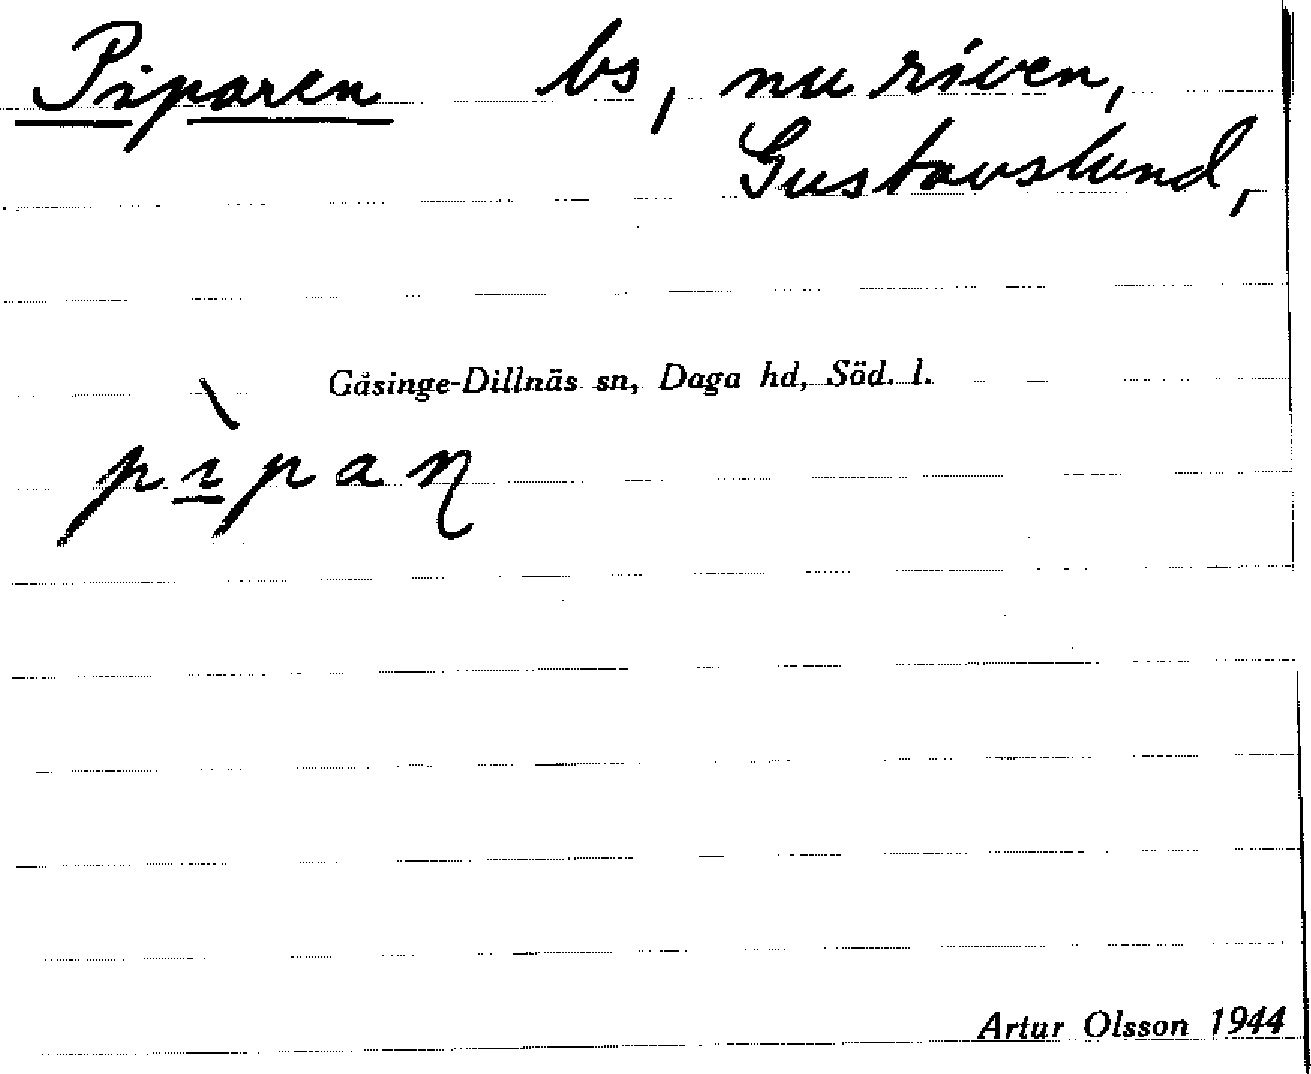 Piparen bs, nu riven,
Gustavslund,
Gåsinge-Dillnäs sn, Daga hd, Söd. l.
pı̠̀paη
Artur Olsson 1944